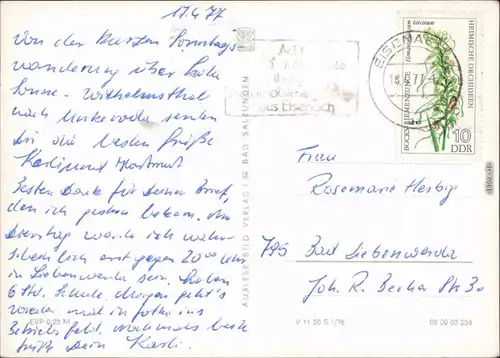 17.4.77
Von der kurzen Sonntags
wanderung über hohe
Sonne - Wilhelmsthal
nach Unkeroda senden
Dir die besten Grüße
Karli und Hartmut
Besten Dank für Deinen Brief,
den ich gestern bekam. Am
Dienstag werde ich wahr-
scheinlich erst gegen 20⁰⁰ Uhr
in Liebenwerda sein, haben
6 Std. Schule. Morgen geht's
wieder mal in
Betrieb. Nochmals beste
Grüße Dein Karli.
EVP 0,25 M
AUSLESEBILD-VERLAG / 62 BAD SALZUNGEN
aus Eisenach
EISENACH
HEIMISCHE ORCHIDEEN
BOCKS-RIEMENZUNGE
Himantoglossum hircinum
10
DDR
Frau
Rosemarie Herbig
795 Bad Liebenwerda
Joh. R. Becher Str. 30
V 11 50 S 1/76
09 09 03 254